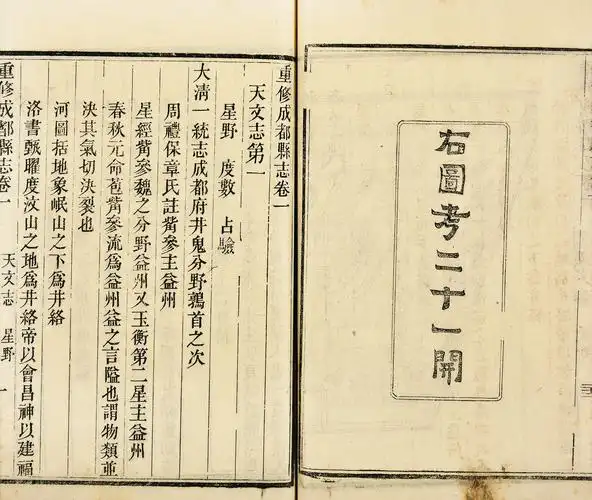 右圖考二十一開
重修成都縣志卷一
天文志第一
星野 度數 占驗
大淸一統志成都府井鬼分野鶉首之次
周禮保章氏註觜參主益州
星經觜參魏之分野益州又玉衡第二星主益州
春秋元命苞觜參流爲益州益之言隘也謂物類並
決其氣切決裂也
河圖括地象岷山之下爲井絡
洛書甄曜度汶山之地爲井絡帝以會昌神以建福
重修成都縣志卷一 天文志 星野 一